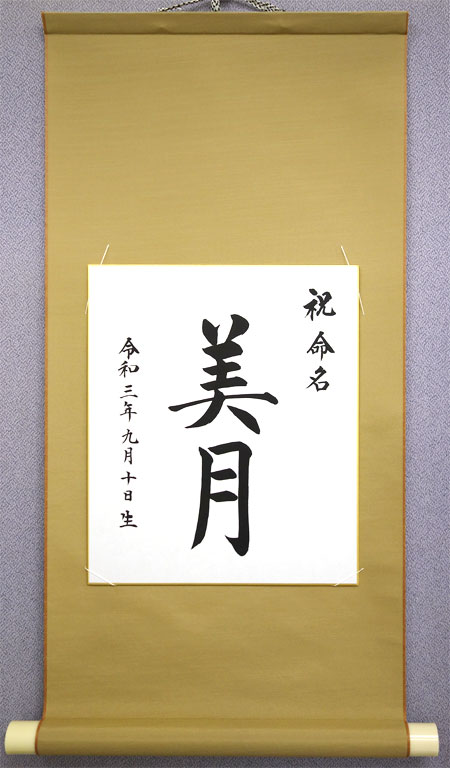 祝命名
美月
令和三年九月十日生